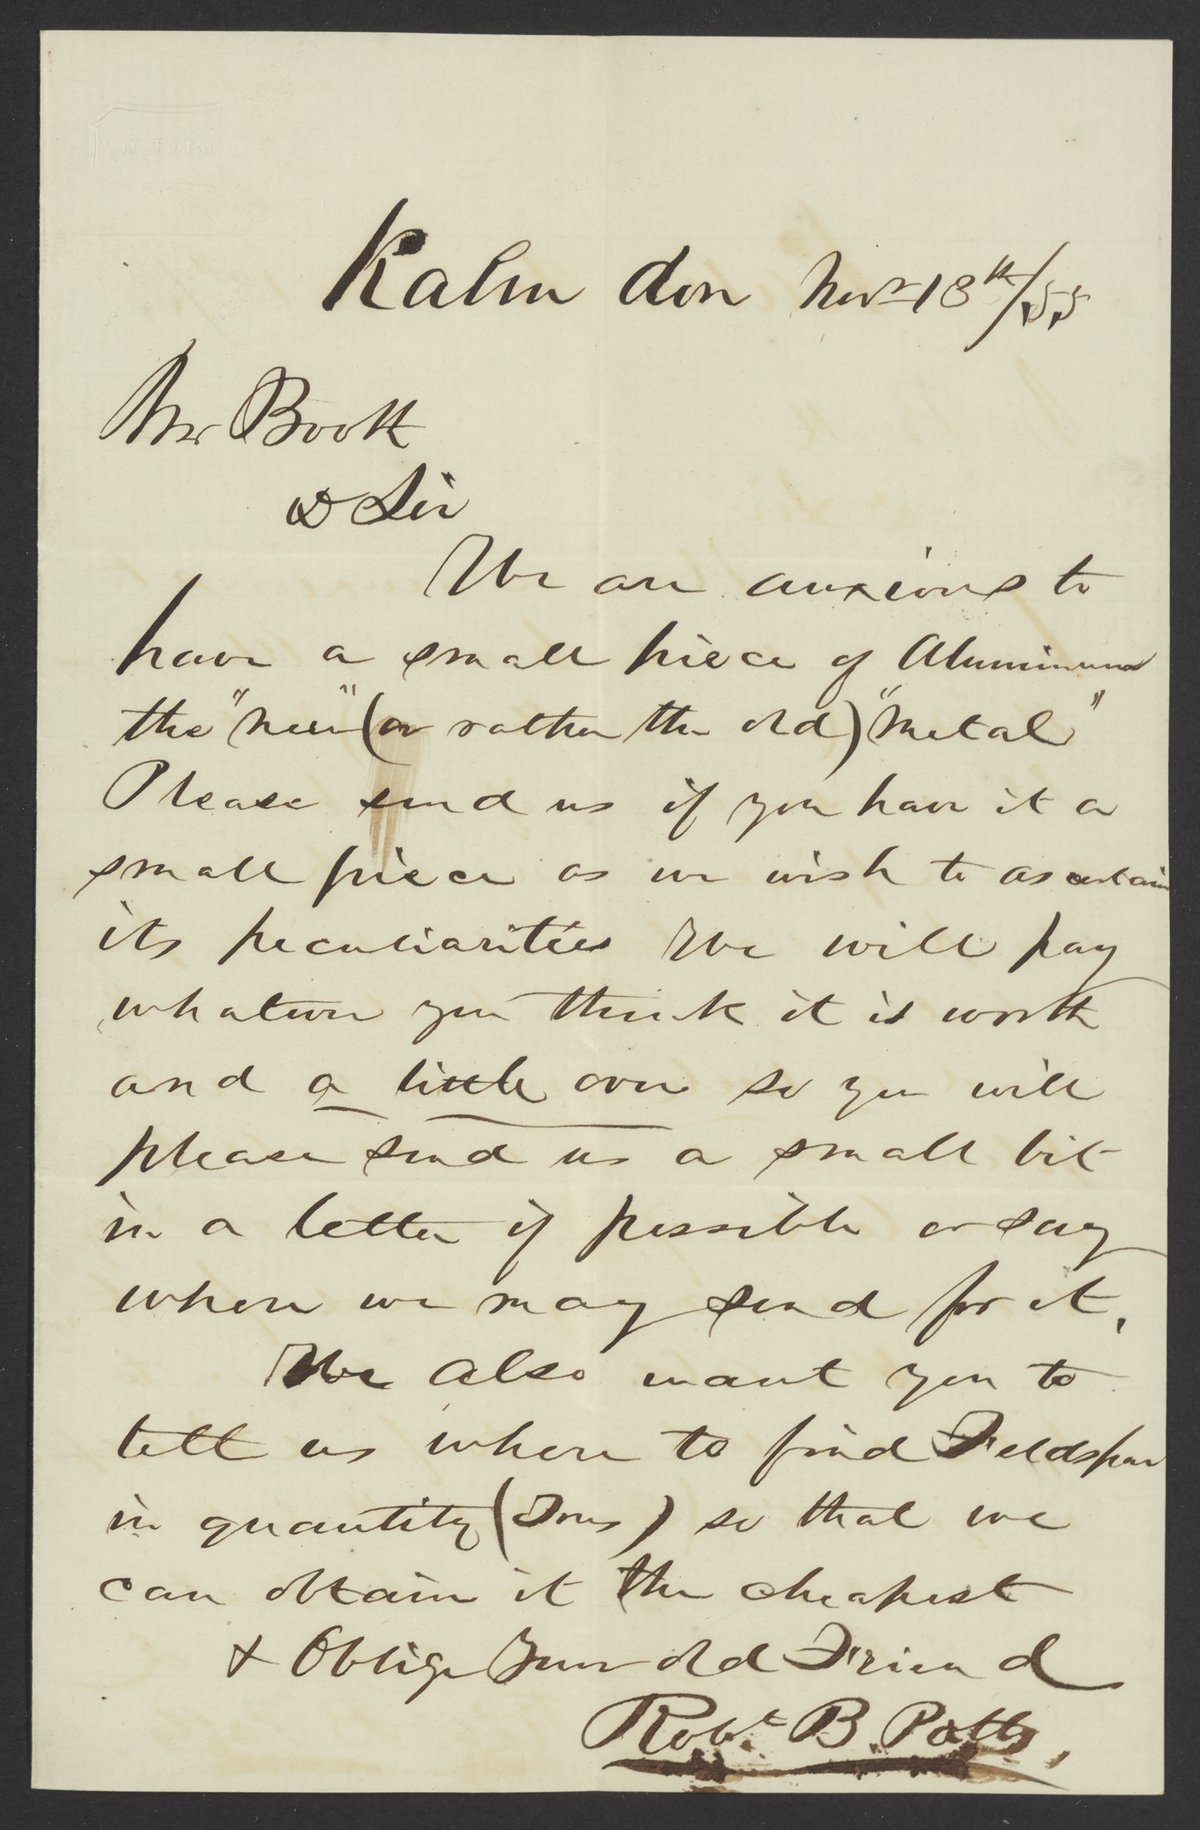 Nov 18th/55
Mr Booth
D Sir
We are anxious to
have a small piece of Aluminum
the "new" (or rather the old) "Metal"
Please send us if you have it a
small piece as we wish to ascertain
its peculiarities We will pay
whatever you think it is worth
and a little over so you will
please send us a small bit
in a letter if possible or say
where we may send for it.
We also want you to
tell us where to find Feldspar
in quantity (Tons) so that we
can obtain it the cheapest
& Oblige Your old Friend
Robt. B. Potts,